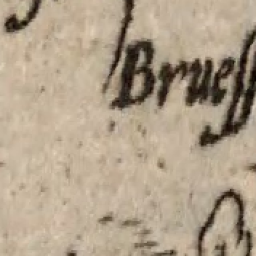 Brueſſ